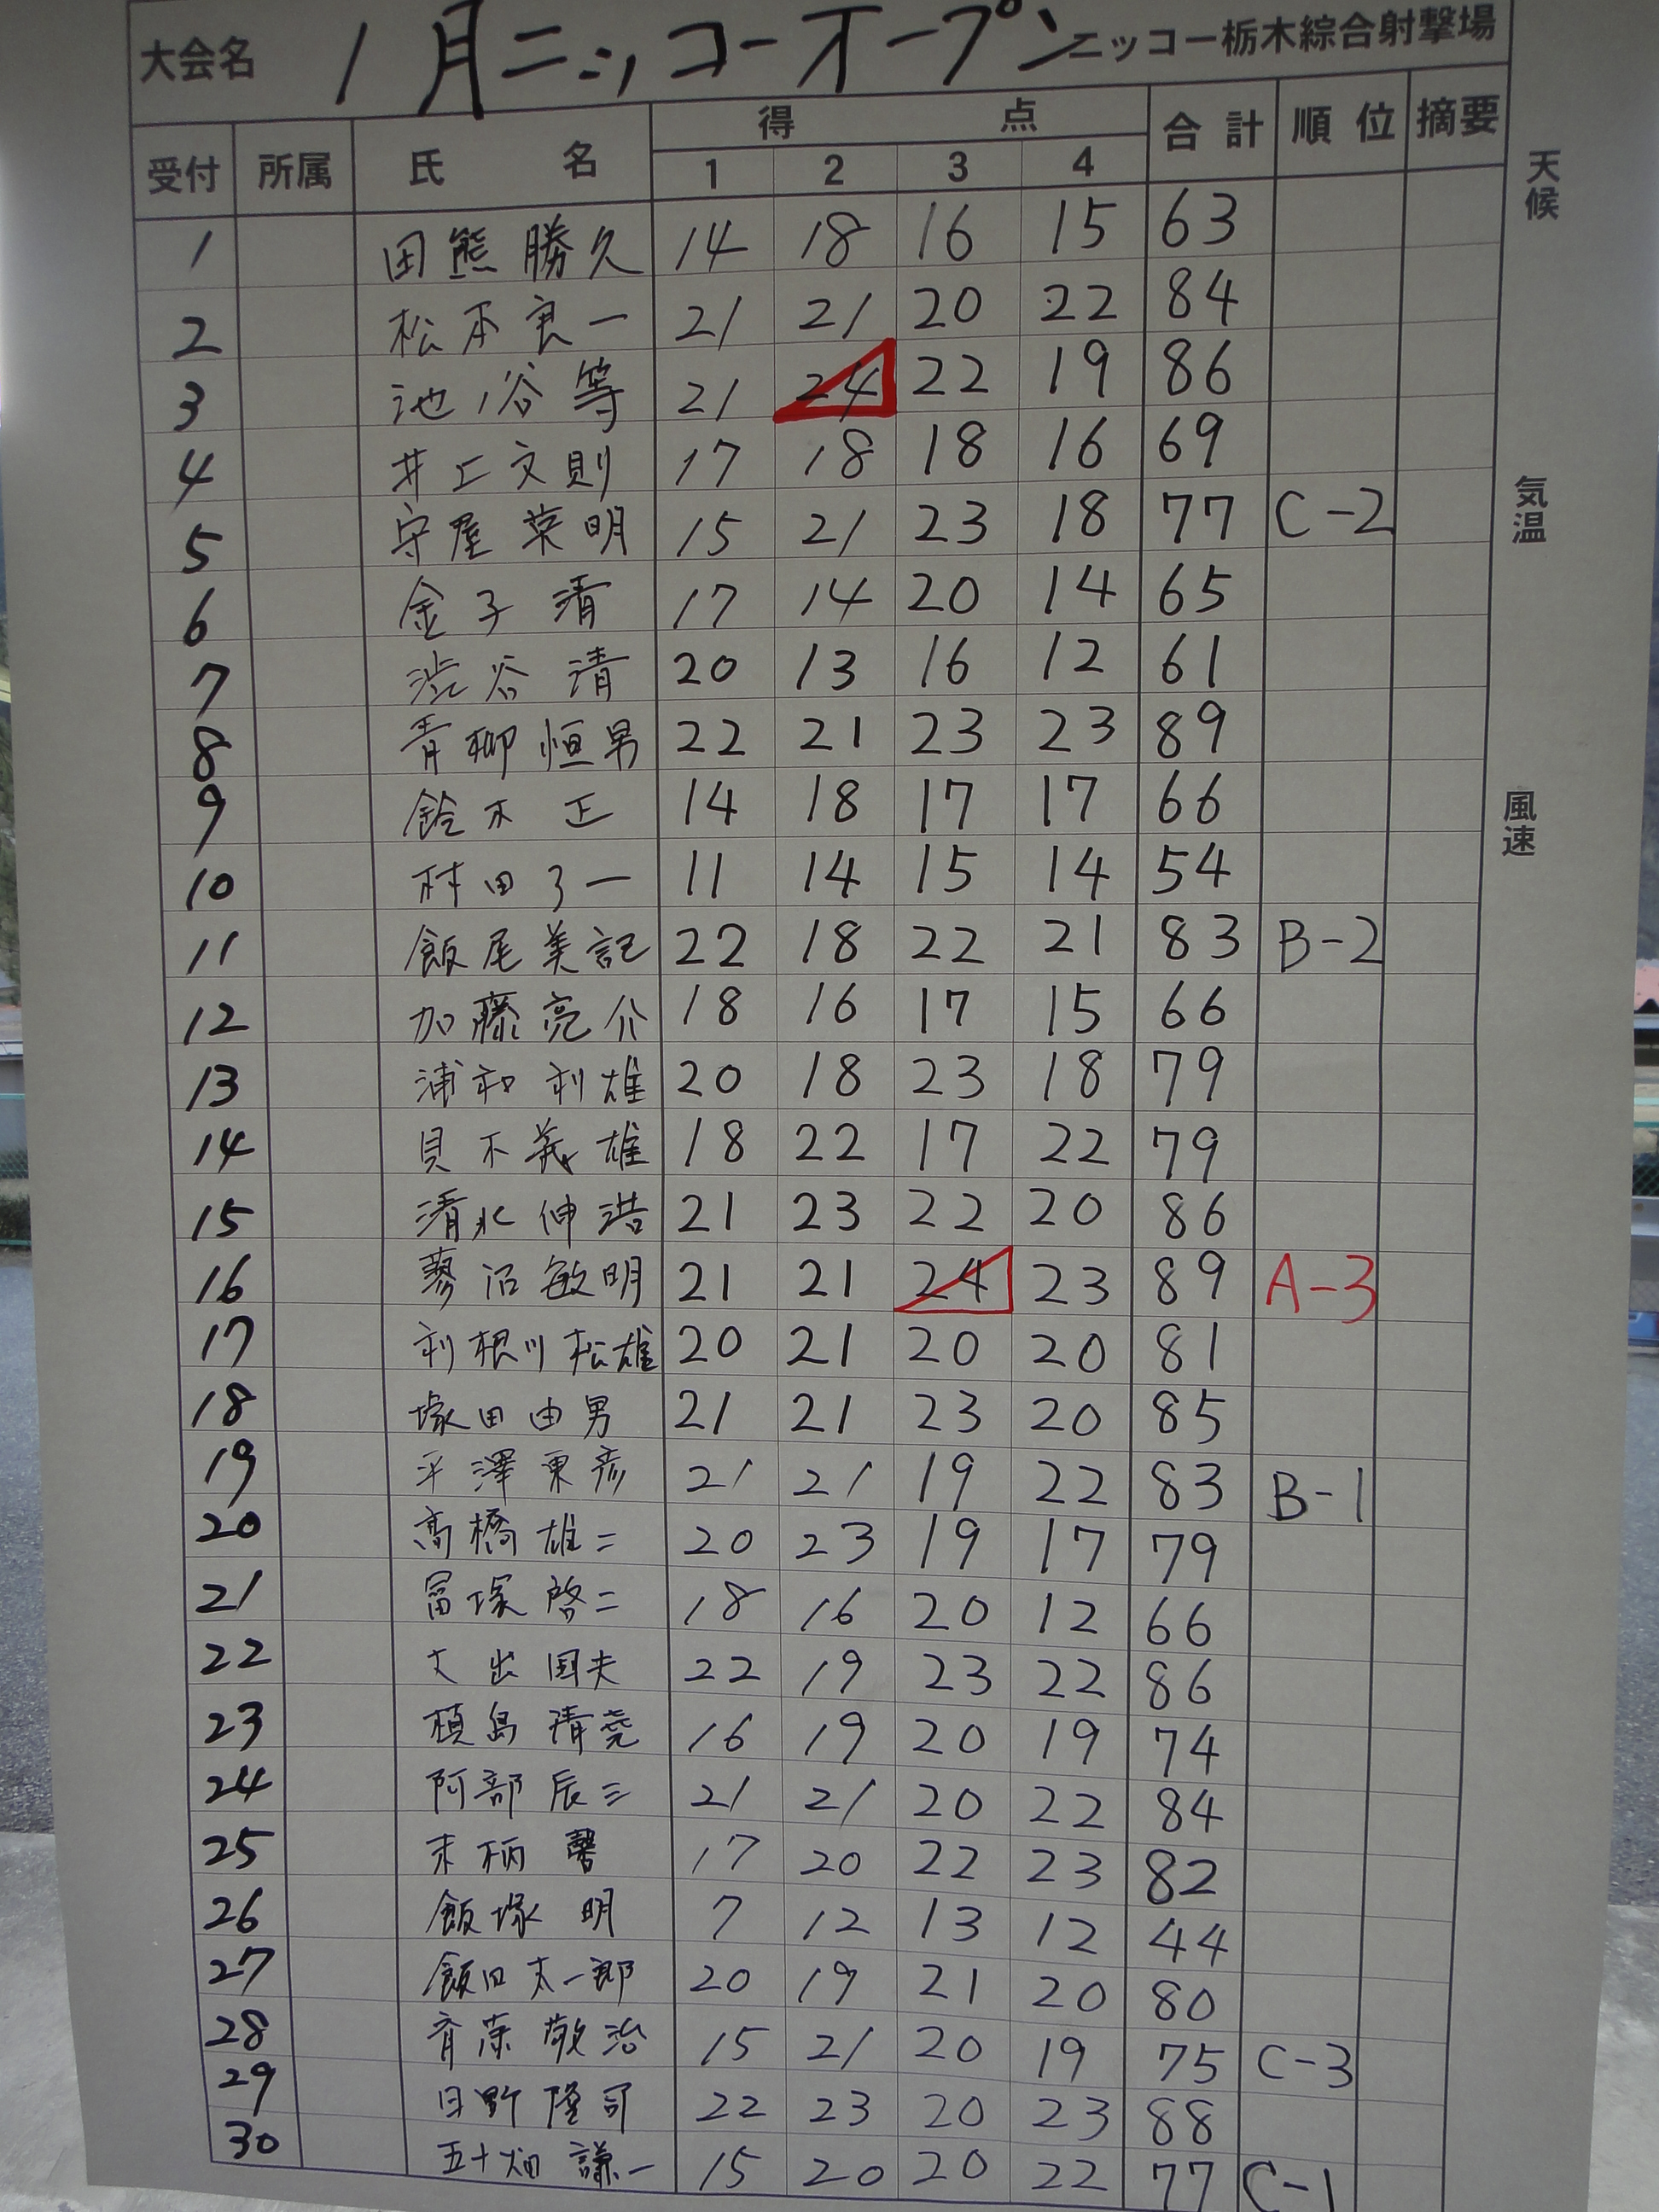 大会名 1月ニッコーオープン ニッコー栃木綜合射撃場
受付 所属 氏名 得点 合計 順位 摘要
1 2 3 4
天候
気温
風速
1 田熊勝久 14 18 16 15 63
2 松本良一 21 21 20 22 84
3 池ノ谷等 21 24 22 19 86
4 井上文則 17 18 18 16 69
5 守屋栄明 15 21 23 18 77 C-2
6 金子清 17 14 20 14 65
7 渋谷清 20 13 16 12 61
8 青柳恒男 22 21 23 23 89
9 鈴木正 14 18 17 17 66
10 村田了一 11 14 15 14 54
11 飯尾美記 22 18 22 21 83 B-2
12 加藤亮介 18 16 17 15 66
13 浦和利雄 20 18 23 18 79
14 貝不義雄 18 22 17 22 79
15 清水伸浩 21 23 22 20 86
16 蓼沼敏明 21 21 24 23 89 A-3
17 利根川松雄 20 21 20 20 81
18 塚田由男 21 21 23 20 85
19 平澤東彦 21 21 19 22 83 B-1
20 高橋雄二 20 23 19 17 79
21 冨塚啓二 18 16 20 12 66
22 出国夫 22 19 23 22 86
23 槙島清 16 19 20 19 74
24 阿部辰三 21 21 20 22 84
25 末柄馨 17 20 22 23 82
26 飯塚明 7 12 13 12 44
27 飯田太一郎 20 19 21 20 80
28 斉藤敬治 15 21 20 19 75 C-3
29 日野隆司 22 23 20 23 88
30 五十畑謙一 15 20 20 22 77 C-1